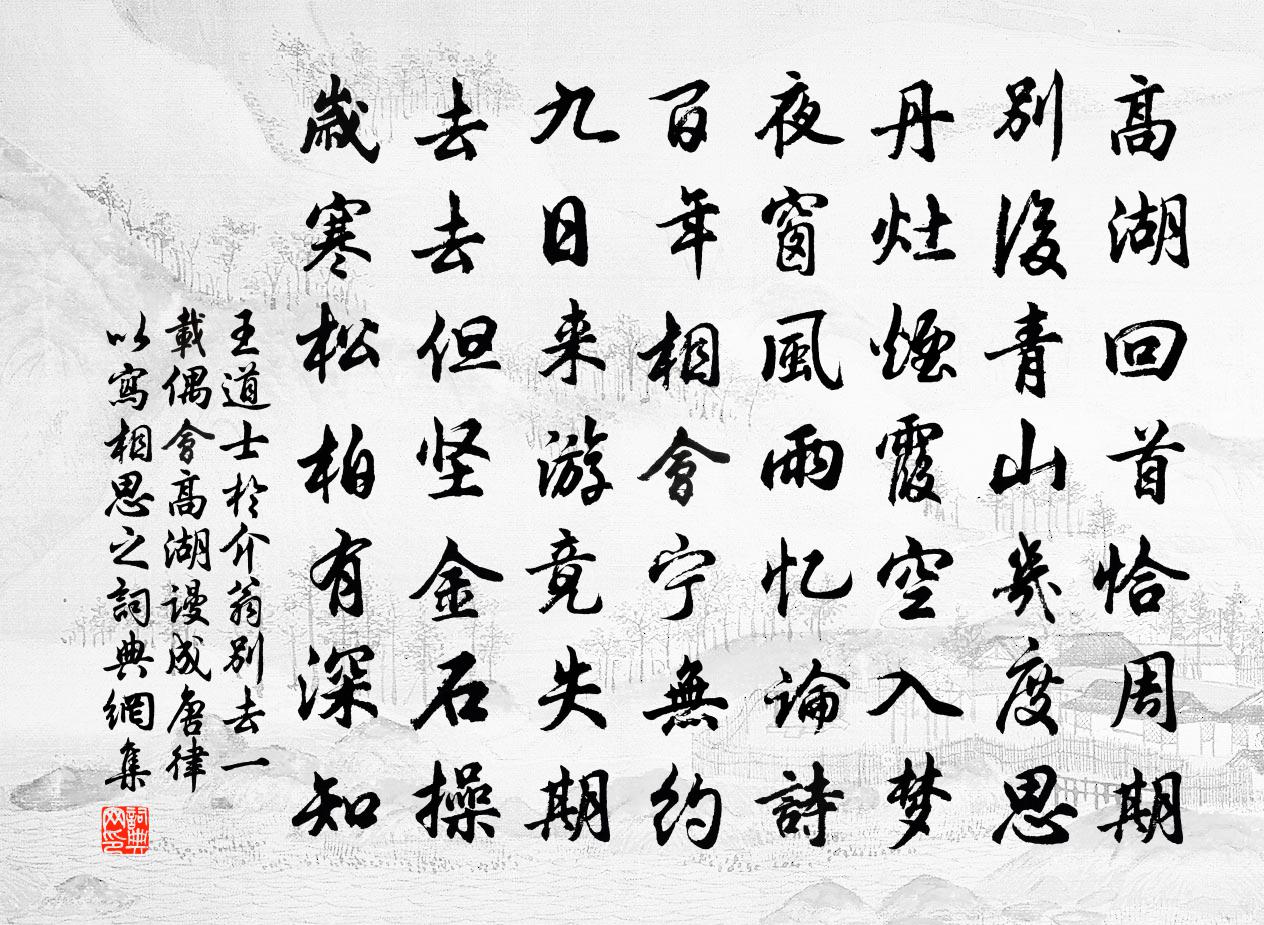 高湖回首恰周期
别後青山幾度思
丹灶煙霞空入梦
夜窗風雨忆論詩
百年相會宁無約
九日来游竟失期
去去但坚金石操
歲寒松柏有深知
王道士於介翁别去一
載偶會高湖谩成唐律
以寫相思之詞典網集
詞典
网印